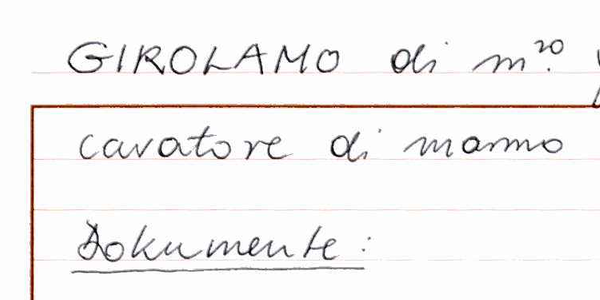 GIROLAMO di m.ro
cavatore di marmo
Dokumente: